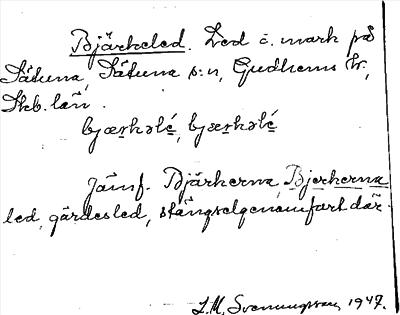 Bjärkeled. Led å mark på
Sätuna, Sätuna s:n, Gudhems hr,
Skb. län.
bjærkəlé, bjærkəlé
Jämf. Bjärkerna, Bjerkerna
led, gärdesled, stängselgenomfart där.
L.M. Svenungsson 1947.